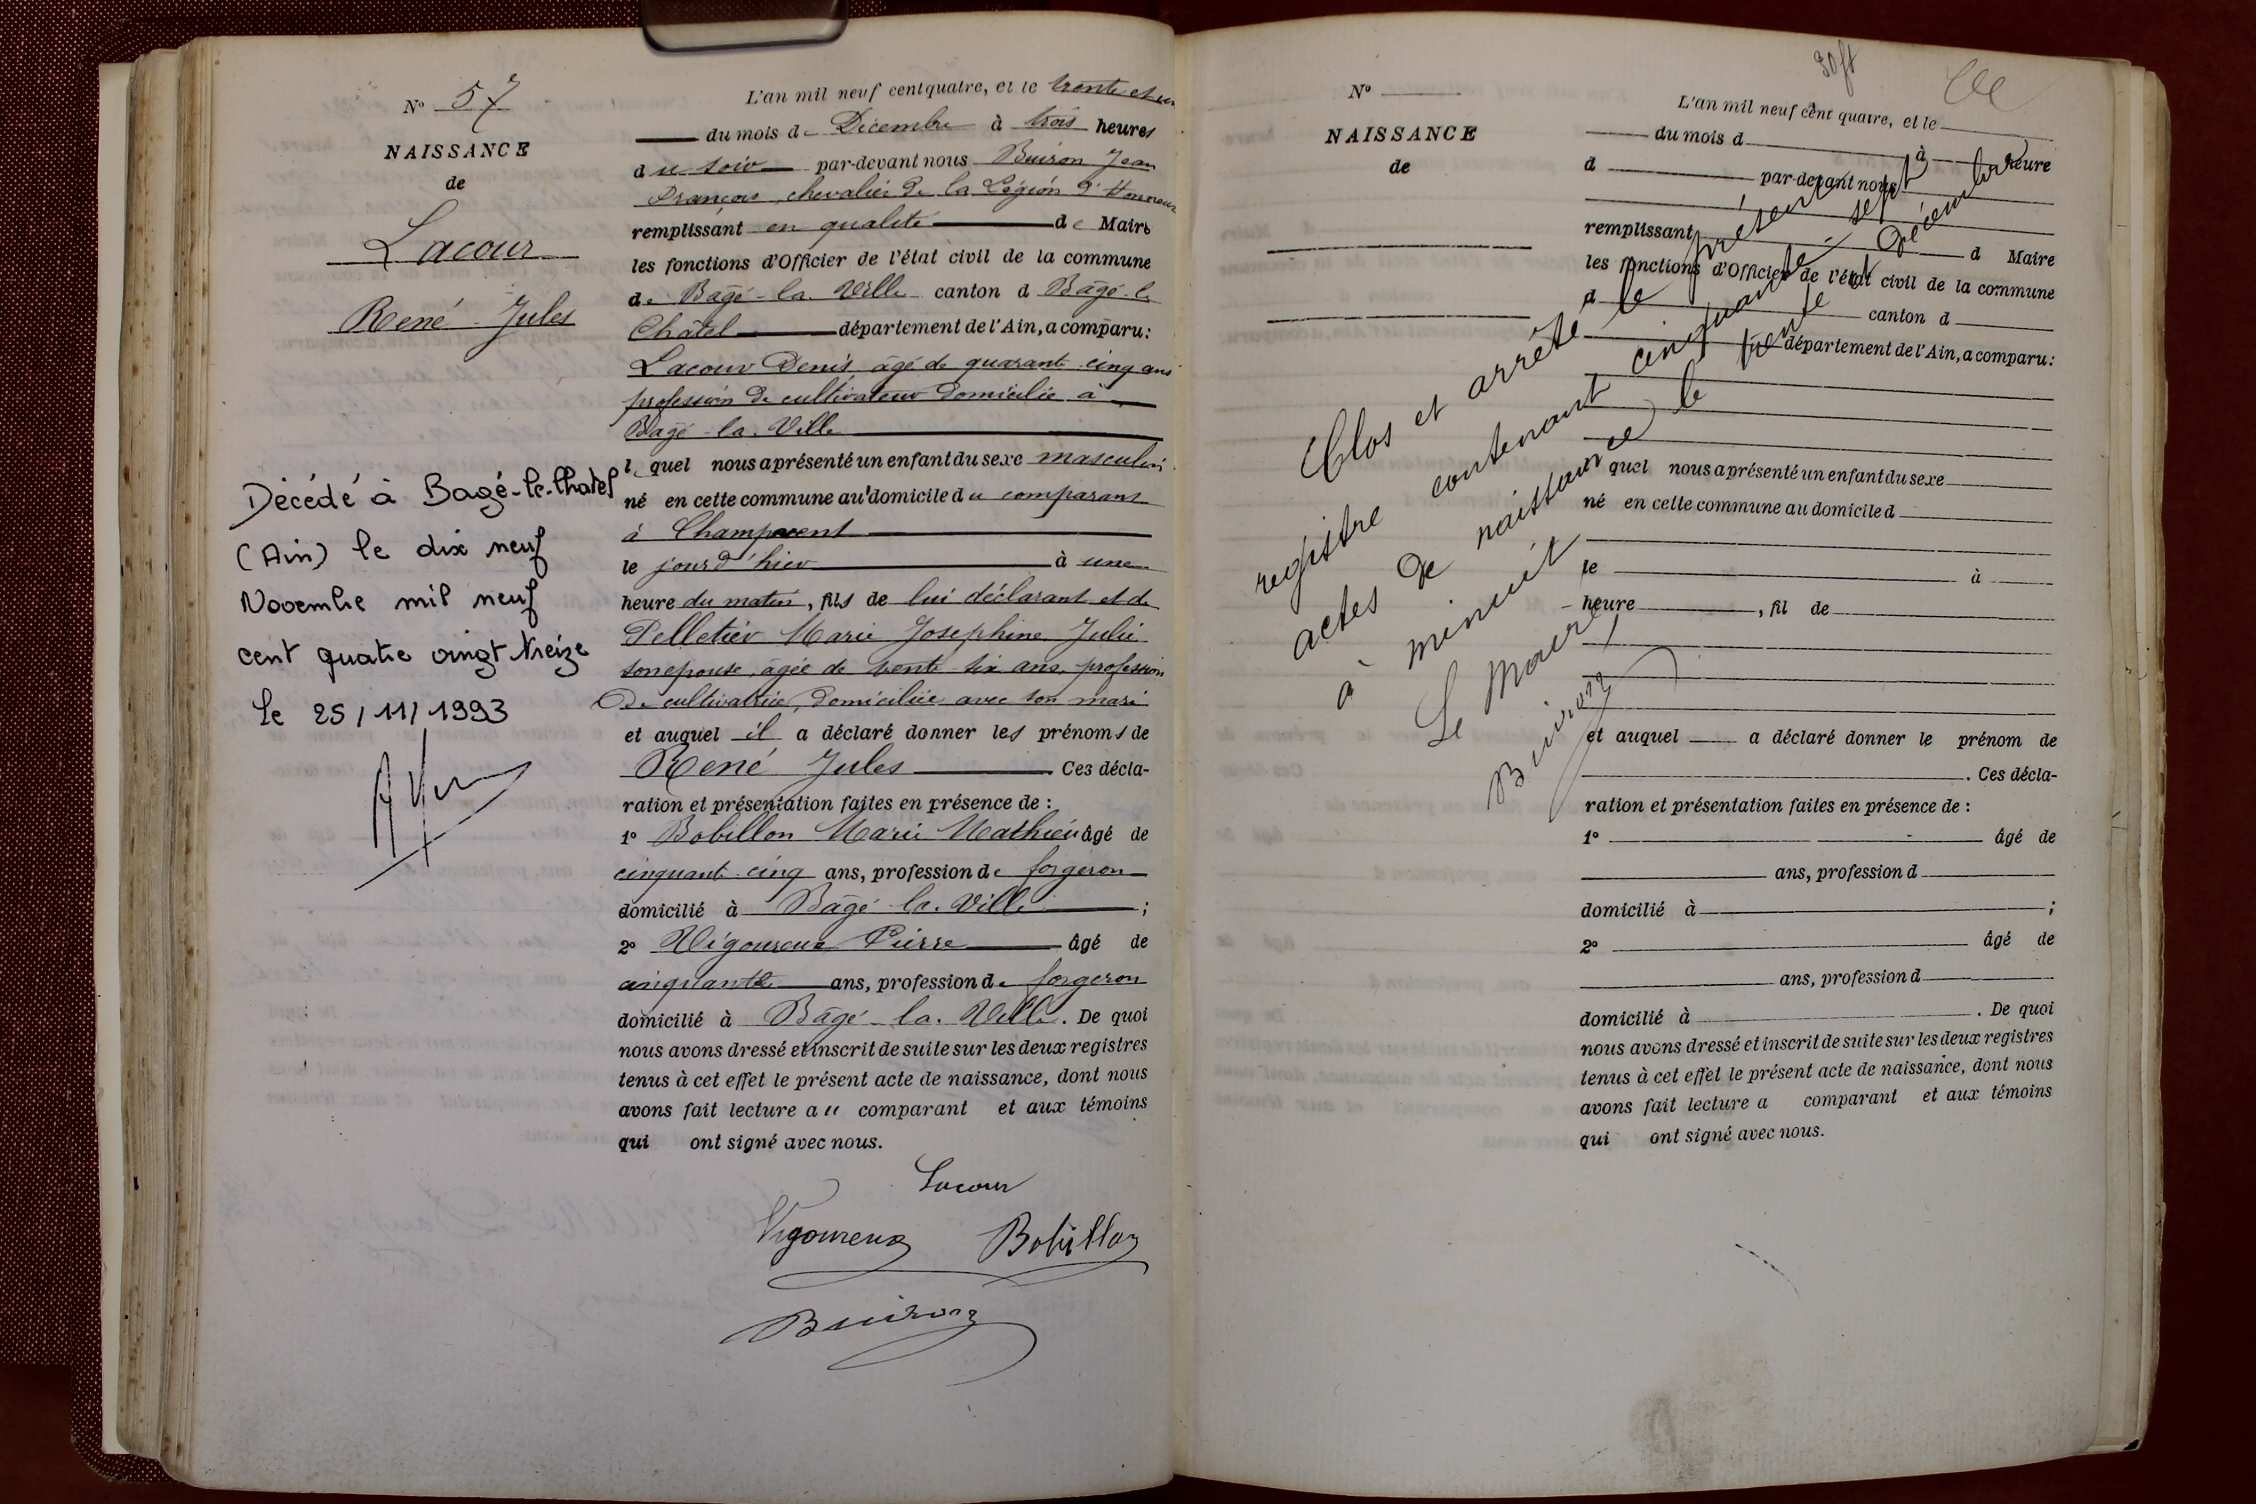 N° 57
NAISSANCE
de
Lacour
René Jules
Décédé à Bagé-le-Chatel
(Ain) le dix neuf
Novembre mil neuf
cent quatre vingt treize
Le 25/11/1993
L'an mil neuf cent quatre, et le trente et un
du mois de Décembre à trois heures
du soir par-devant nous Buiron Jean
François, chevalier de la Légion d'Honneur
remplissant en qualité de Maire
les fonctions d'Officier de l'état civil de la commune
de Bâgé-la-Ville canton d Bâgé-le
Châtel département de l'Ain, a comparu:
Lacour Denis, âgé de quarante cinq ans
profession de cultivateur domicilié à
Bâgé-la-Ville
lequel nous a présenté un enfant du sexe masculin
né en cette commune au domicile du comparant
à Champvent
le jour d'hier à une
heure du matin, fils de lui déclarant et de
Pelletier Marie Josephine Julie
son épouse, âgée de trente-six ans, profession
de cultivatrice, domiciliée avec son mari
et auquel il a déclaré donner les prénoms de
René Jules Ces décla-
ration et présentation faites en présence de :
1° Bobillon Marie Mathieu âgé de
cinquante cinq ans, profession de forgeron
domicilié à Bâgé-la-Ville ;
2° Vigoureux Pierre âgé de
cinquante ans, profession de forgeron
domicilié à Bâgé-la-Ville. De quoi
nous avons dressé et inscrit de suite sur les deux registres
tenus à cet effet le présent acte de naissance, dont nous
avons fait lecture au comparant et aux témoins
qui ont signé avec nous.
Lacour
Vigoureux Bobillon
Buiron
N°
NAISSANCE
de
30 ft
L'an mil neuf cent quatre, et le
du mois d à heure
d par-devant nous
remplissant d Maire
les fonctions d'Officier de l'état civil de la commune
d canton d
département de l'Ain, a comparu:
quel nous a présenté un enfant du sexe
né en cette commune au domicile d
le à
heure , fil de
et auquel a déclaré donner le prénom de
. Ces décla-
ration et présentation faites en présence de :
1° âgé de
ans, profession d
domicilié à ;
2° âgé de
ans, profession d
domicilié à . De quoi
nous avons dressé et inscrit de suite sur les deux registres
tenus à cet effet le présent acte de naissance, dont nous
avons fait lecture a comparant et aux témoins
qui ont signé avec nous.
Clos et arrêté le présent
registre contenant cinquante-sept
actes de naissance, le trente et Décembre
à minuit
Le Maire,
Buiron